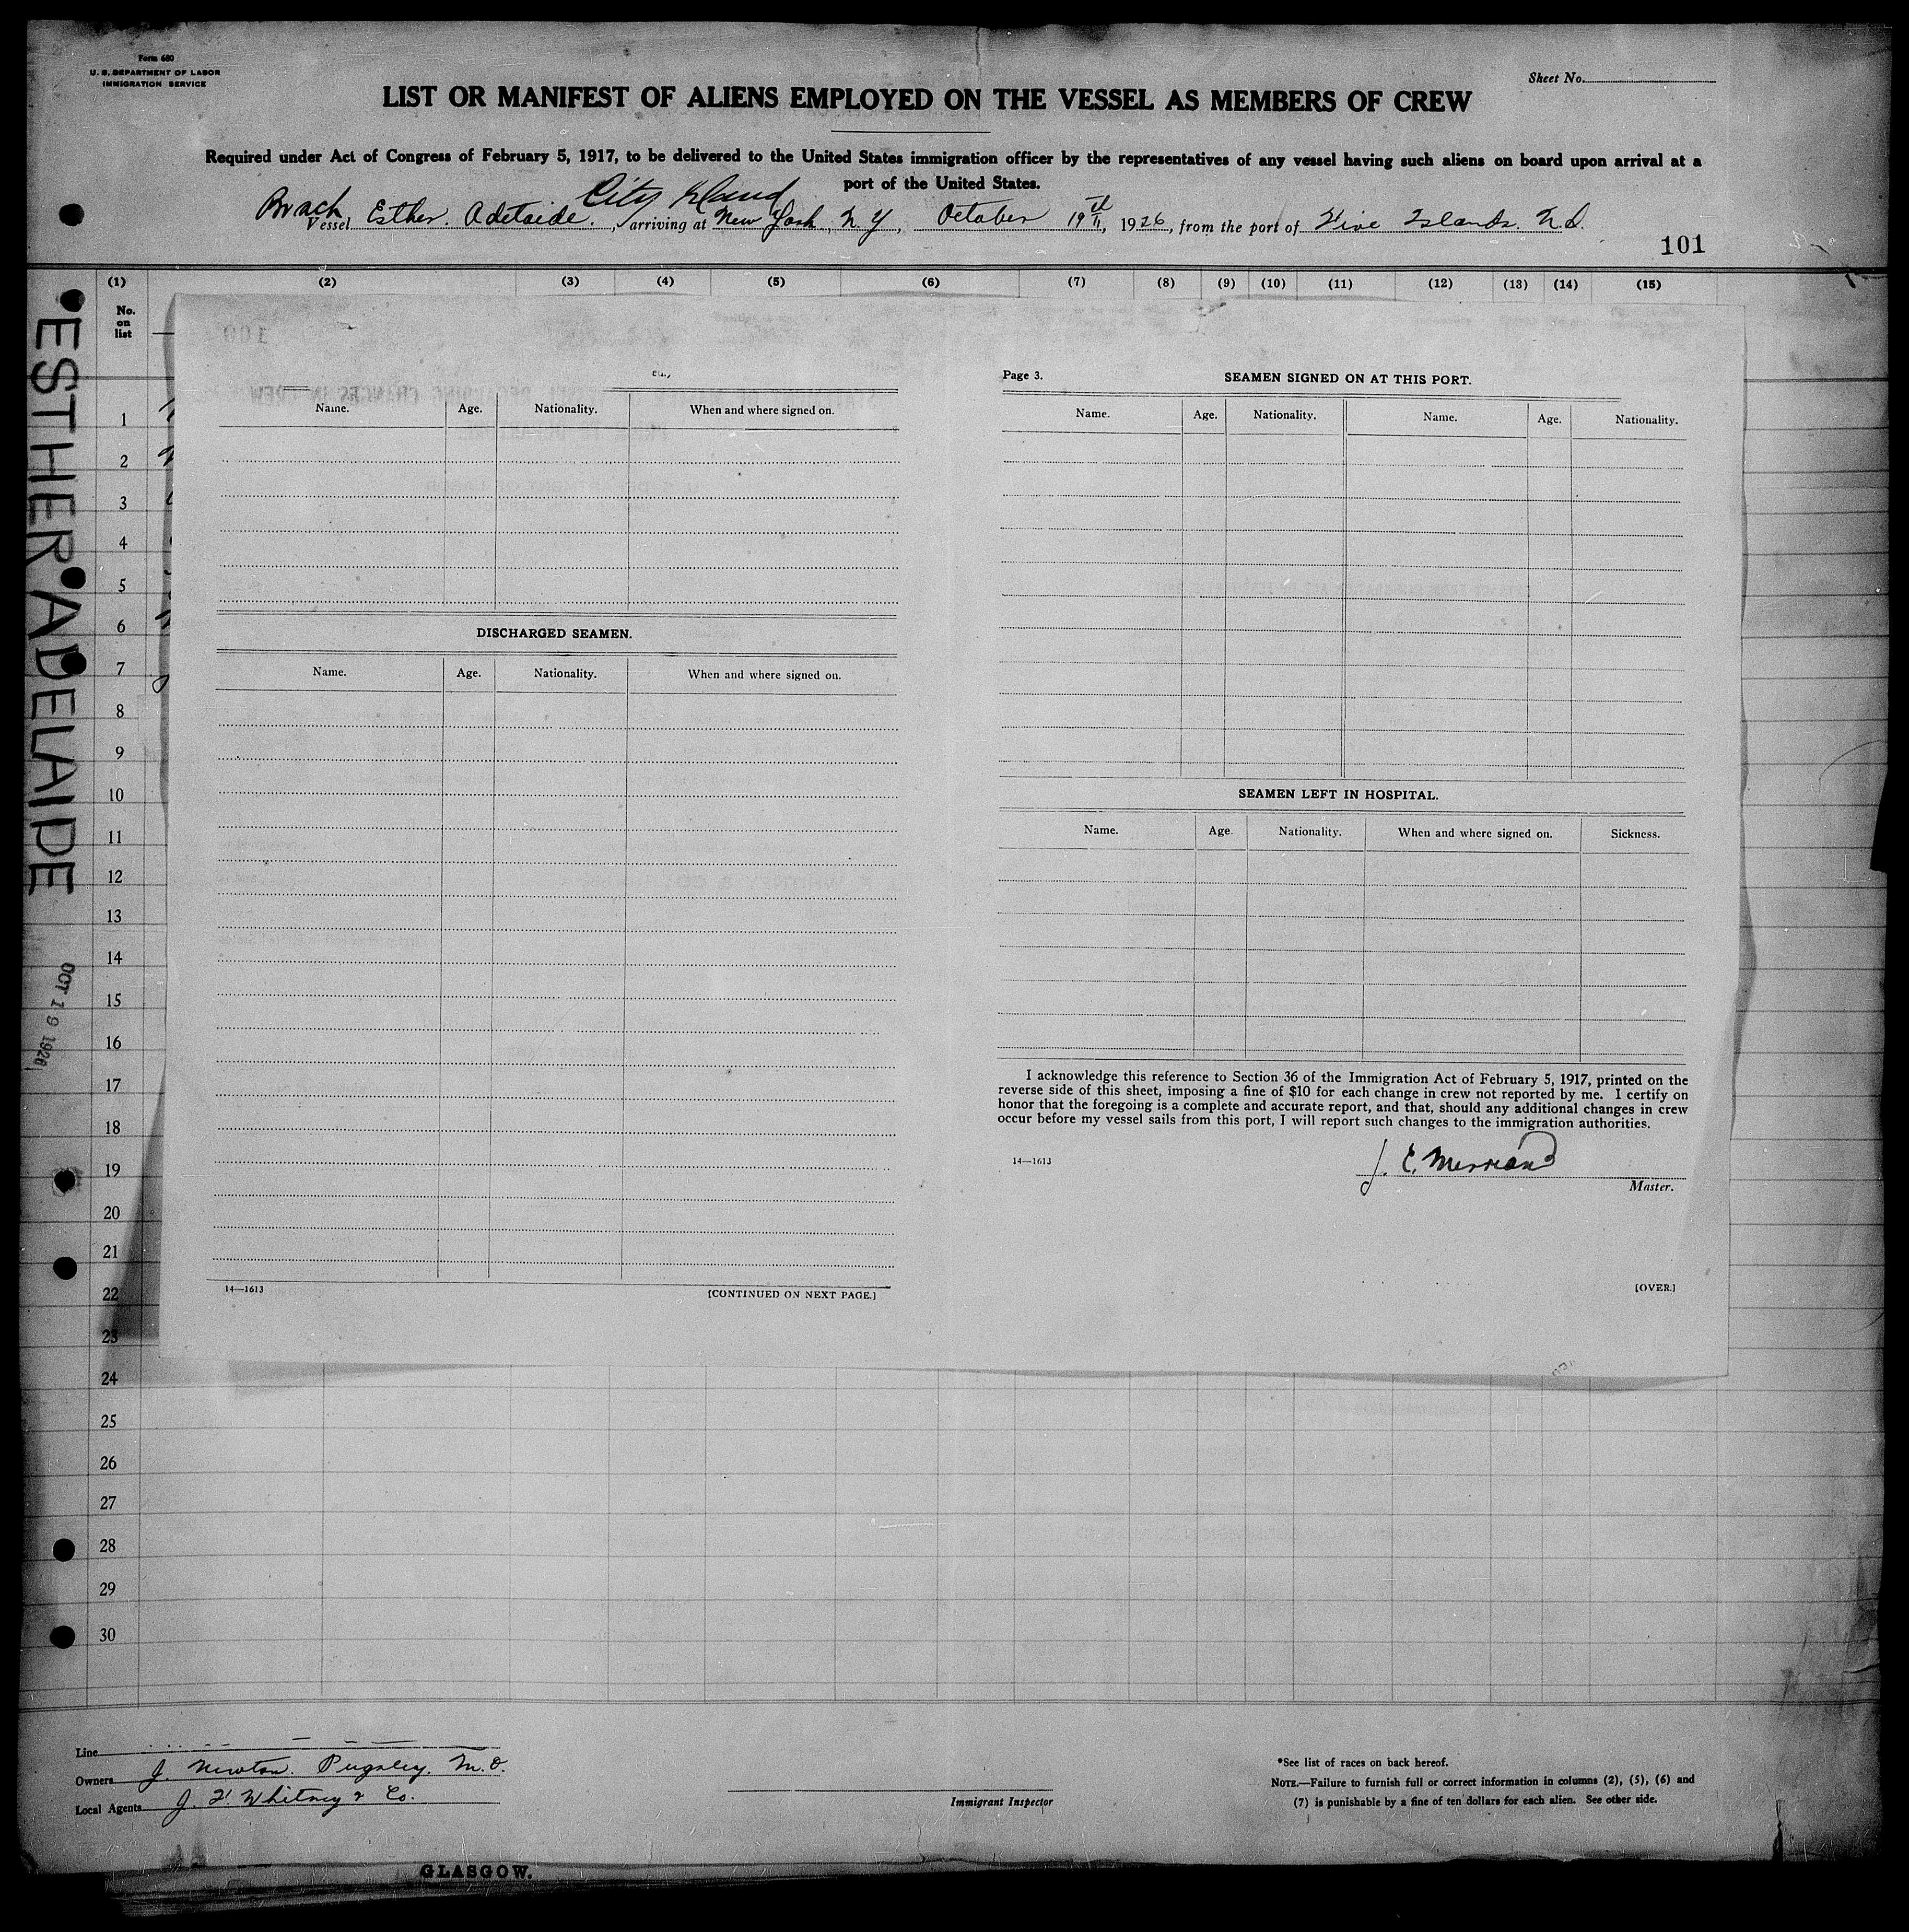 Form 680
U. S. DEPARTMENT OF LABOR
IMMIGRATION SERVICE
Sheet No.
LIST OR MANIFEST OF ALIENS EMPLOYED ON THE VESSEL AS MEMBERS OF CREW
Required under Act of Congress of February 5, 1917, to be delivered to the United States immigration officer by the representatives of any vessel having such aliens on board upon arrival at a
port of the United States.
City Island
Vessel Esther Adelaide, arriving at New York, N. Y., October 19th, 1926, from the port of Five Islands. N.S.
101
(1) (2) (3) (4) (5) (6) (7) (8) (9) (10) (11) (12) (13) (14) (15)
No.
on
list
ESTHER ADELAIDE
OCT 19 1926
1
2
3
4
5
6
7
8
9
10
11
12
13
14
15
16
17
18
19
20
21
22
23
24
25
26
27
28
29
30
Name. Age. Nationality. When and where signed on.
DISCHARGED SEAMEN.
Name. Age. Nationality. When and where signed on.
14—1613
[CONTINUED ON NEXT PAGE.]
Page 3.
SEAMEN SIGNED ON AT THIS PORT.
Name. Age. Nationality. Name. Age. Nationality.
SEAMEN LEFT IN HOSPITAL.
Name. Age. Nationality. When and where signed on. Sickness.
I acknowledge this reference to Section 36 of the Immigration Act of February 5, 1917, printed on the
reverse side of this sheet, imposing a fine of $10 for each change in crew not reported by me. I certify on
honor that the foregoing is a complete and accurate report, and that, should any additional changes in crew
occur before my vessel sails from this port, I will report such changes to the immigration authorities.
14—1613
J. E. Merriam
Master.
[OVER.]
Line
Owners J. Newton Pugsley. M.O.
Local Agents J. F. Whitney & Co.
Immigrant Inspector
*See list of races on back hereof.
NOTE.—Failure to furnish full or correct information in columns (2), (5), (6) and
(7) is punishable by a fine of ten dollars for each alien. See other side.
GLASGOW.